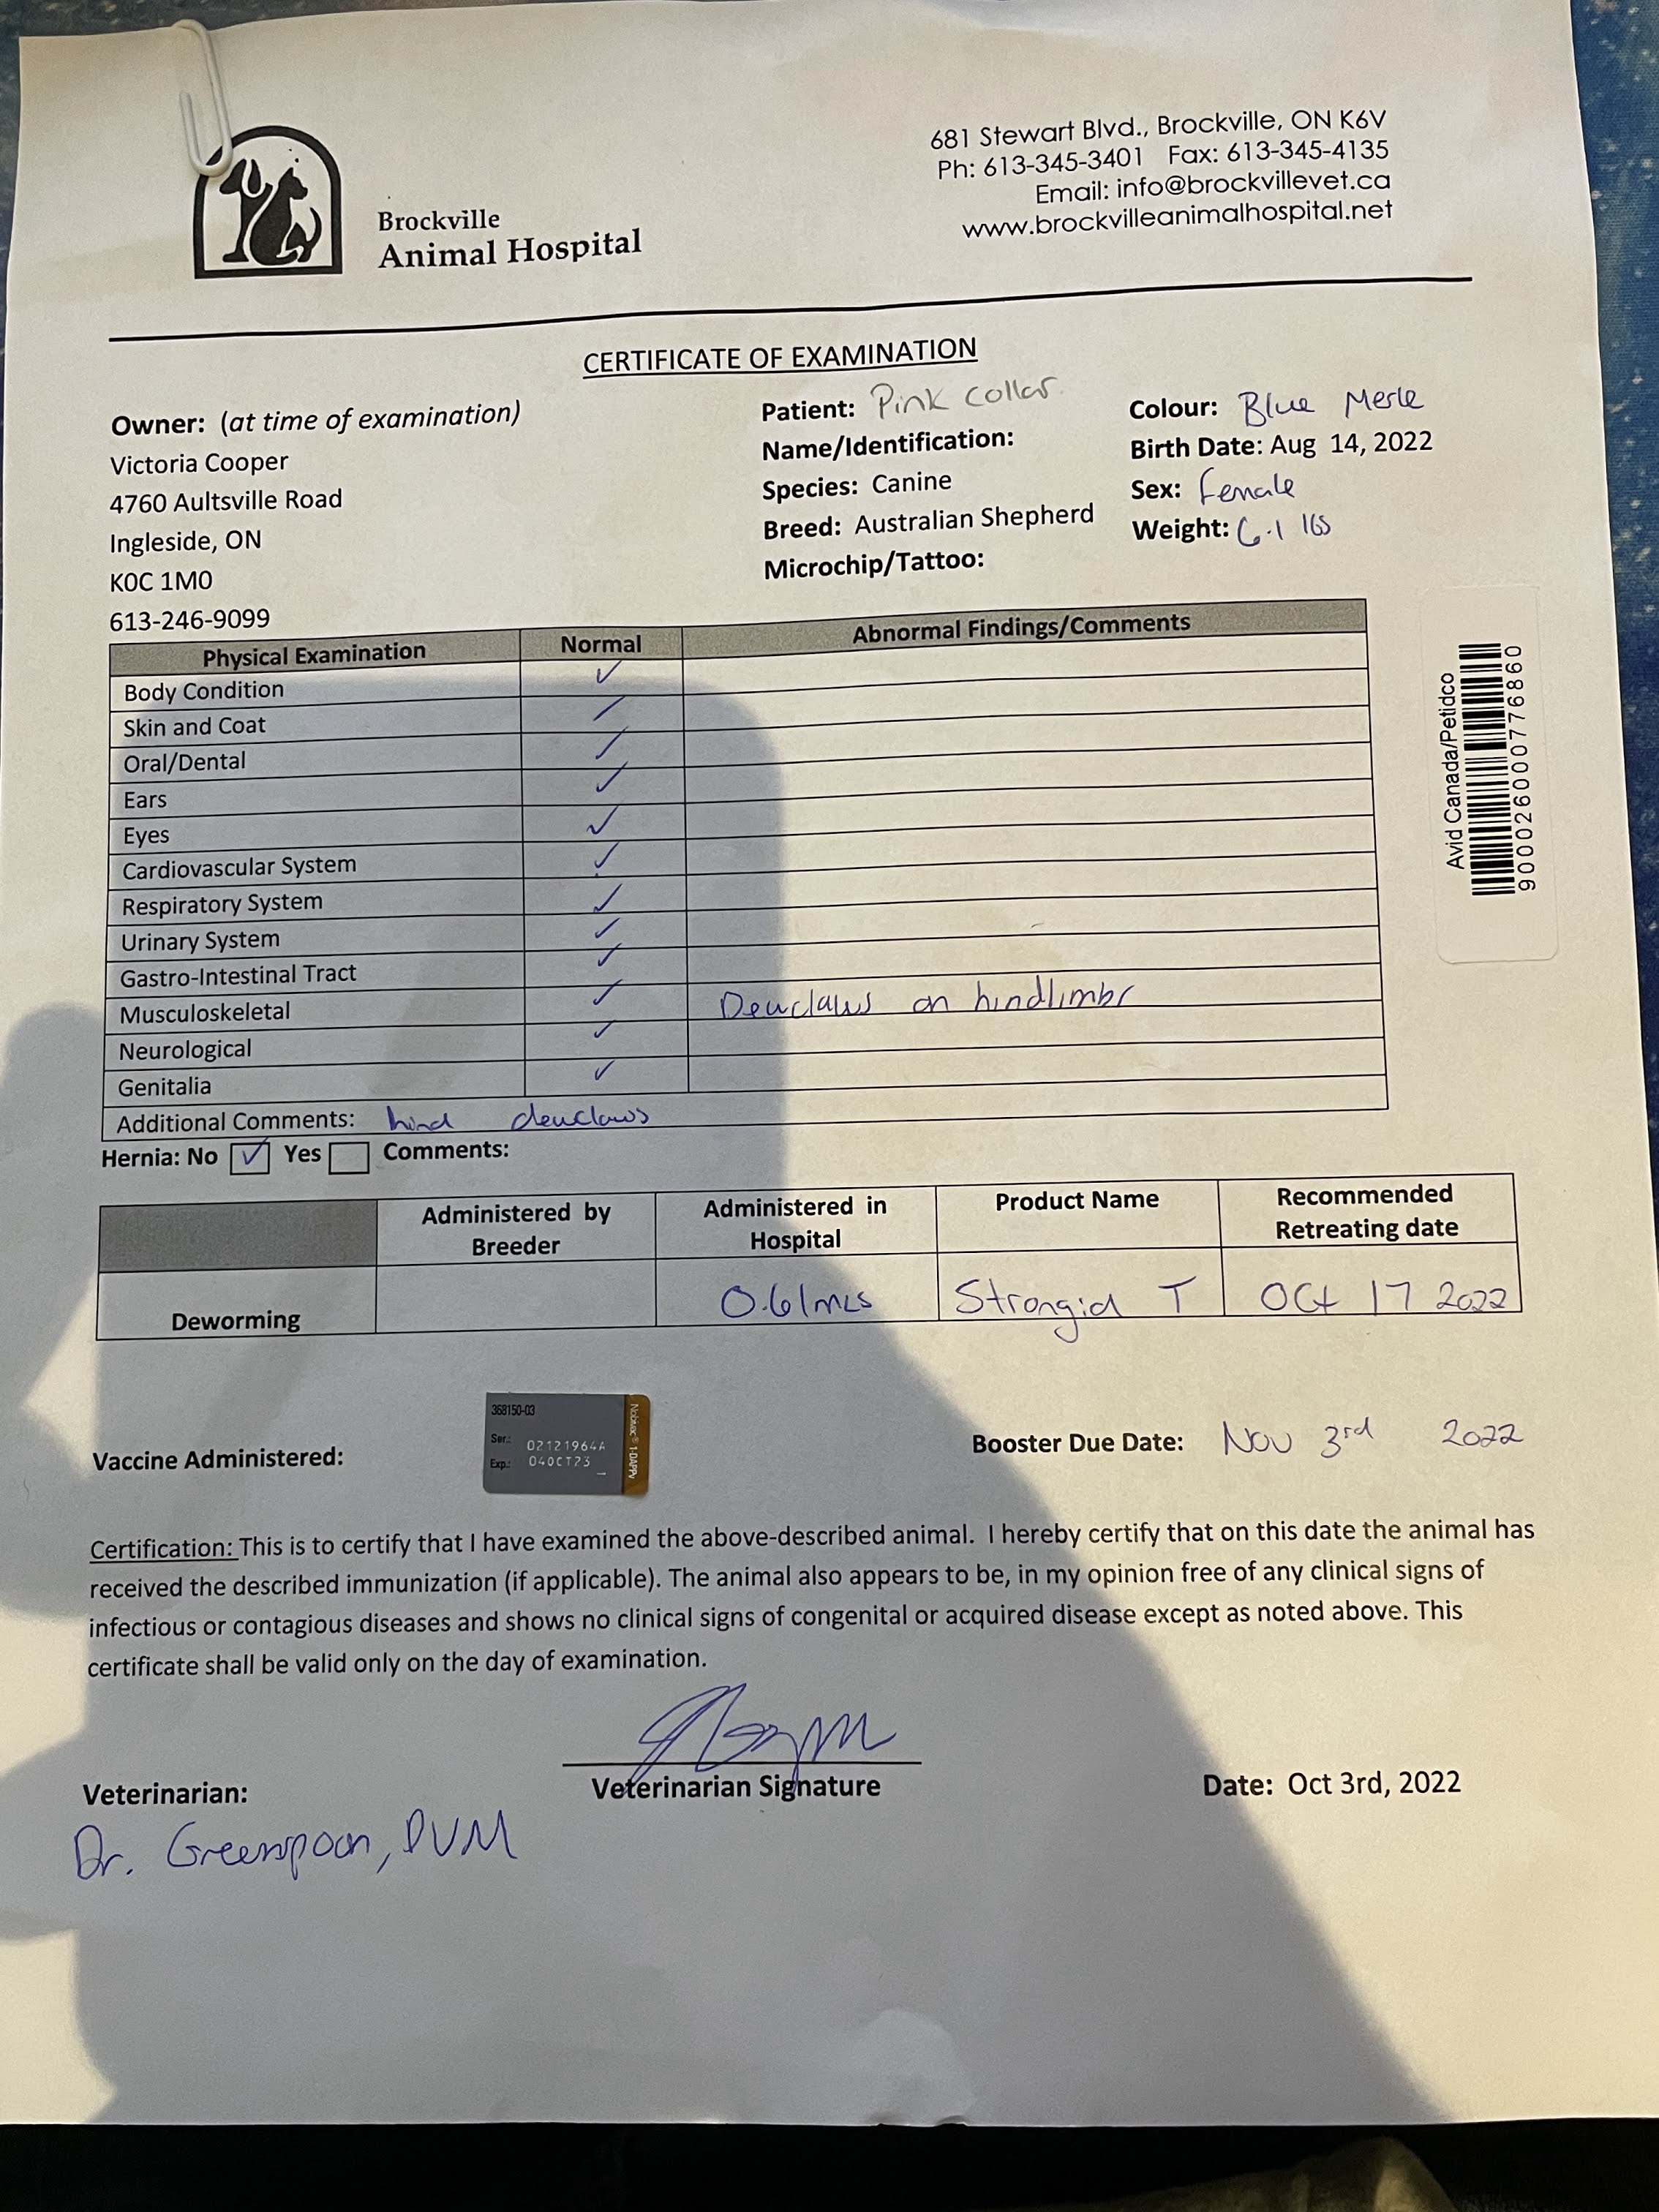 681 Stewart Blvd., Brockville, ON K6V
Ph: 613-345-3401 Fax: 613-345-4135
Email: info@brockvillevet.ca
www.brockvilleanimalhospital.net
Brockville
Animal Hospital
CERTIFICATE OF EXAMINATION
Owner: (at time of examination)
Victoria Cooper
4760 Aultsville Road
Ingleside, ON
K0C 1M0
613-246-9099
Patient: Pink collar
Name/Identification:
Species: Canine
Breed: Australian Shepherd
Microchip/Tattoo:
Colour: Blue Merle
Birth Date: Aug 14, 2022
Sex: Female
Weight: 6.1 lbs
Avid Canada/Petidco
900026000776860
Physical Examination Normal Abnormal Findings/Comments
Body Condition ✓
Skin and Coat ✓
Oral/Dental ✓
Ears ✓
Eyes ✓
Cardiovascular System ✓
Respiratory System ✓
Urinary System ✓
Gastro-Intestinal Tract ✓
Musculoskeletal ✓ Dewclaws on hindlimbs
Neurological ✓
Genitalia ✓
Additional Comments: hind dewclaws
Hernia: No ✓ Yes Comments:
Administered by Breeder Administered in Hospital Product Name Recommended Retreating date
Deworming 0.61mLs Strongid T Oct 17 2022
Vaccine Administered:
368150-03
Ser.: 02121964A
Exp.: 04OCT23
Nobivac® 1-DAPPv
Booster Due Date: Nov 3rd 2022
Certification: This is to certify that I have examined the above-described animal. I hereby certify that on this date the animal has
received the described immunization (if applicable). The animal also appears to be, in my opinion free of any clinical signs of
infectious or contagious diseases and shows no clinical signs of congenital or acquired disease except as noted above. This
certificate shall be valid only on the day of examination.
Veterinarian:
Dr. Greenspoon, DVM
Veterinarian Signature
Date: Oct 3rd, 2022